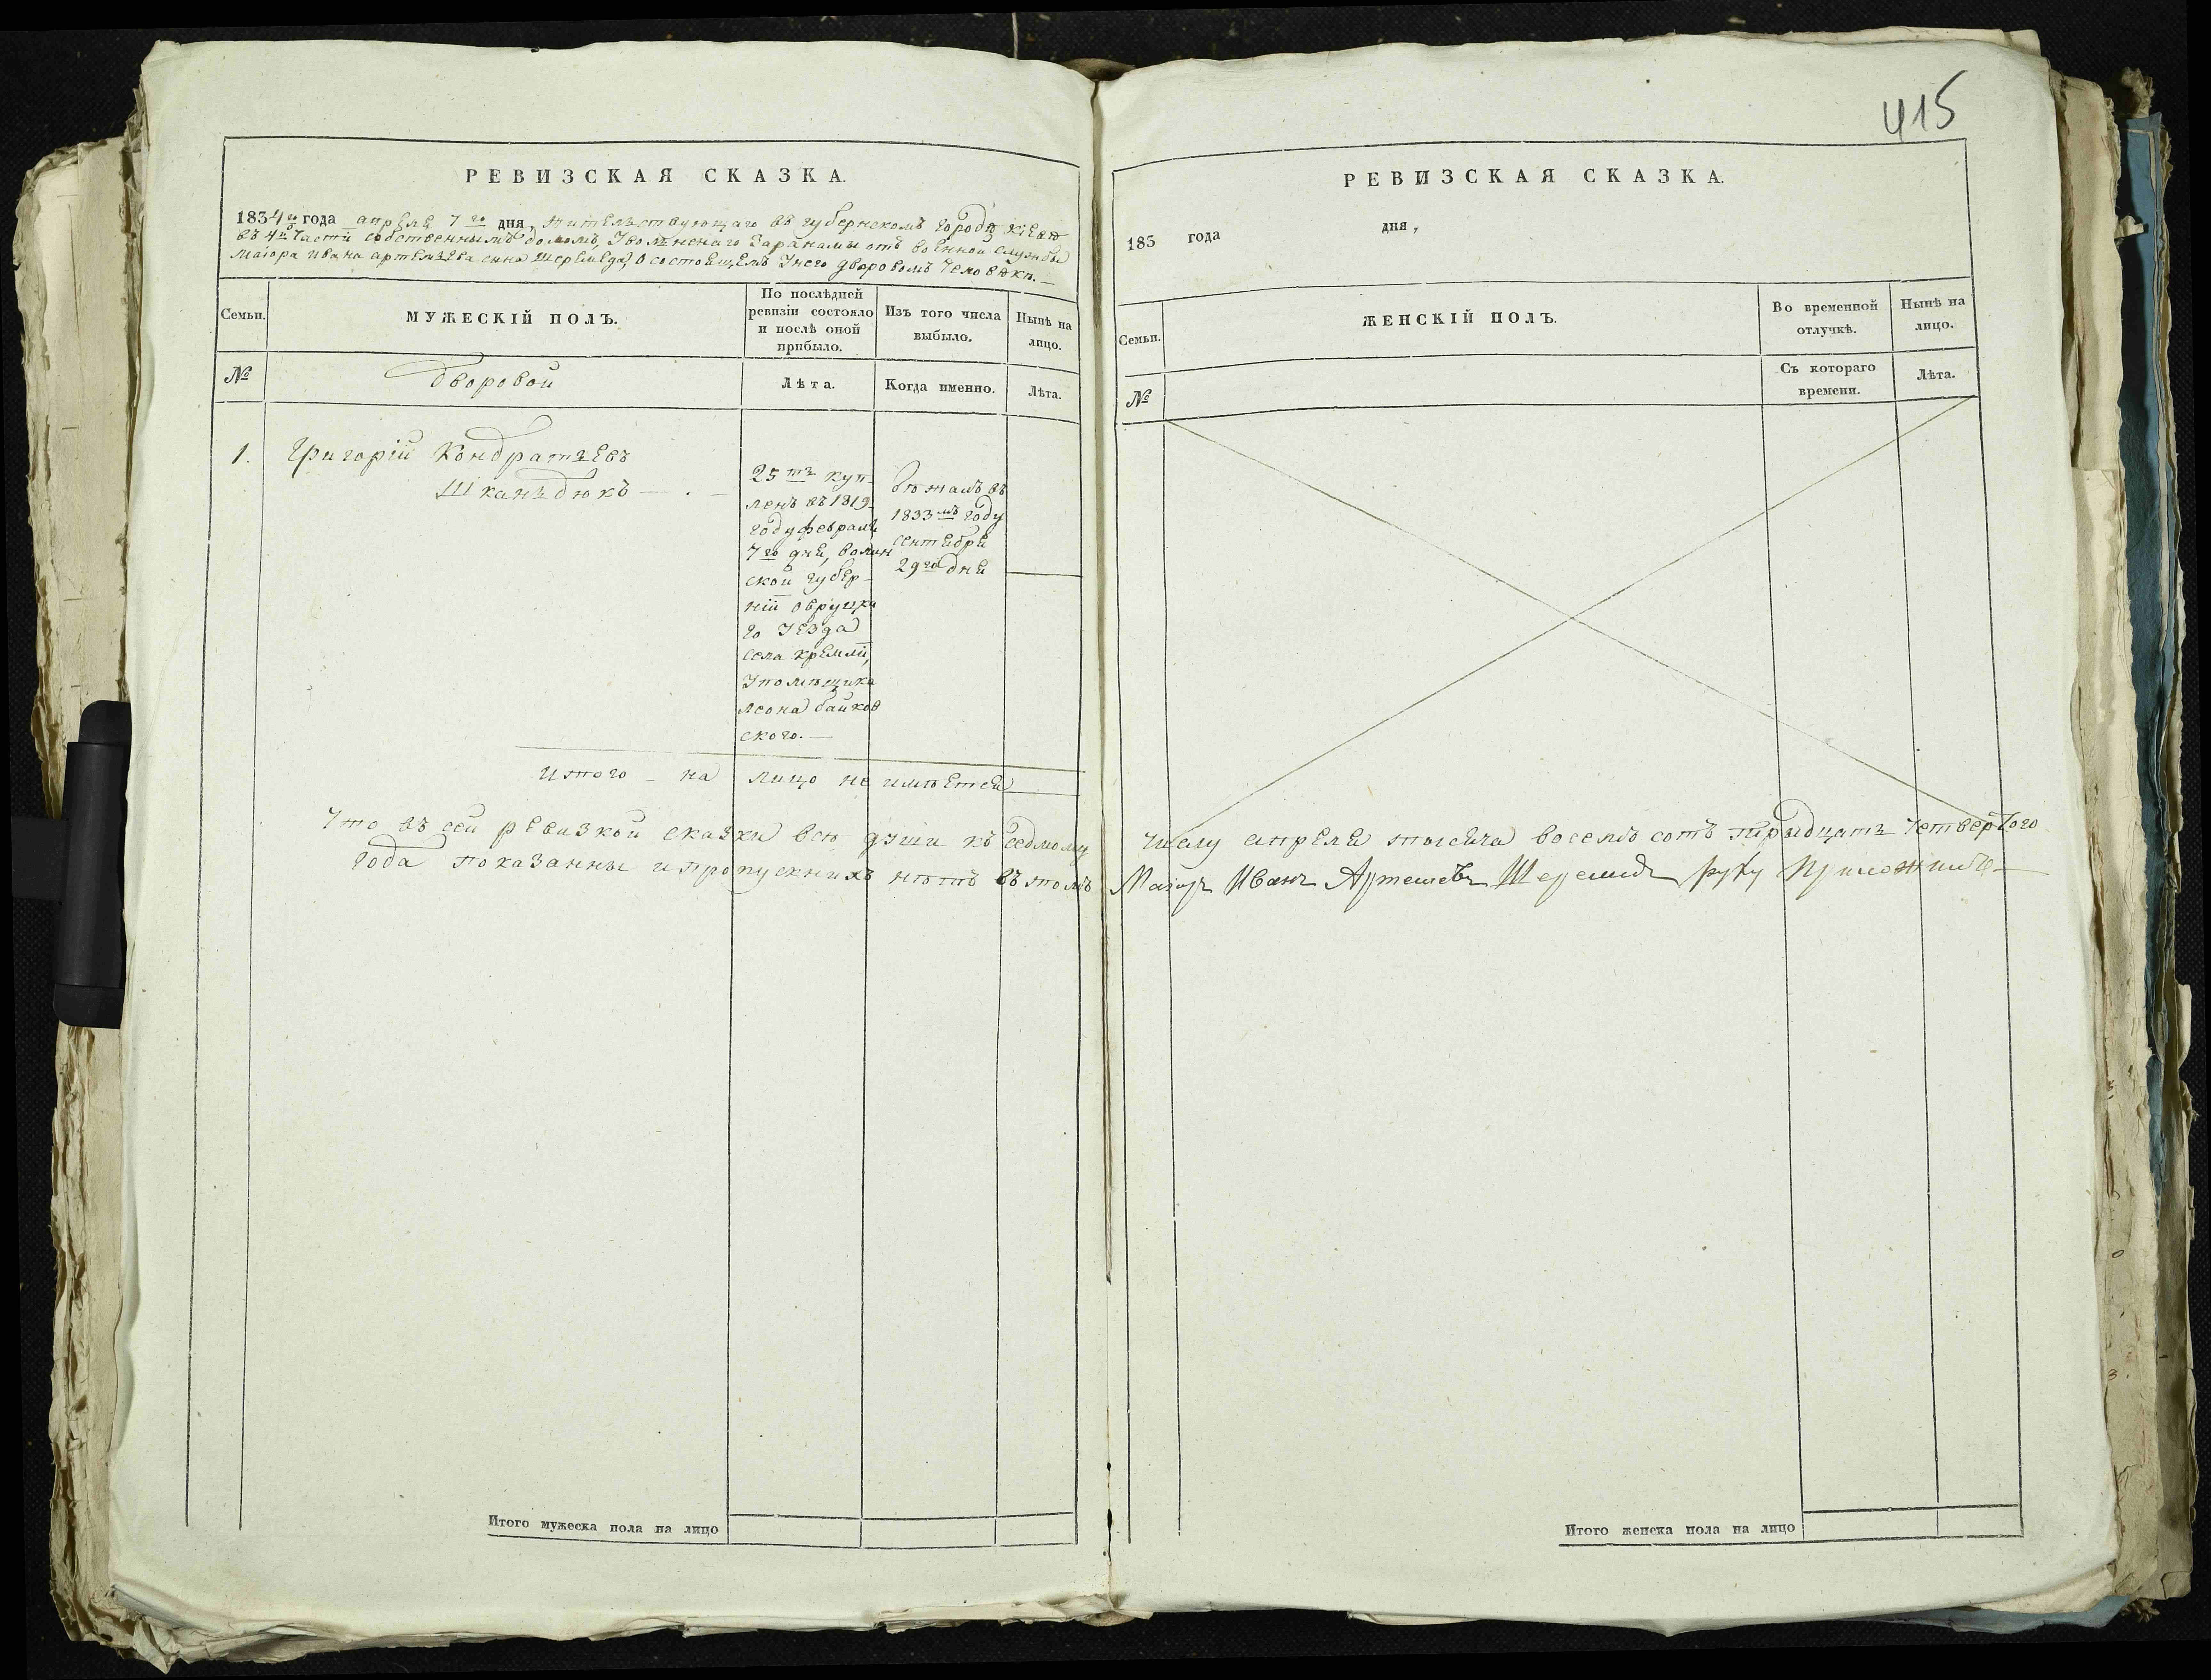 415
РЕВИЗСКАЯ СКАЗКА.
1834го года апреля 7го дня, жительствующаго въ губернскомъ городѣ Кіевѣ
въ 4й части собственнымъ домомъ, Уволѣненаго заранамы отъ военной службы
Маіора Ивана Артемьева сына Шеремеда, о состоящемъ у него дворовомъ человѣкѣ.
Семьи.
МУЖЕСКІЙ ПОЛЪ.
По послѣдней
ревизіи состояло
и послѣ оной
прибыло.
Изъ того числа
выбыло.
Нынѣ на
лицо.
№
дворовой
Лѣта.
Когда именно.
Лѣта.
1.
Григорій Кондратьевъ
Шканьдюкъ
25ть куп-
ленъ въ 1819
году февраля
7го дня, волын
ской губер-
ніи овруцка
го уезда
села кремли,
у помѣщика
леона байков
ского.
бѣжалъ въ
1833мъ году
сентября
29го дня
итого - на лицо не имѣется
Что въ сей ревизкой сказки всѣ души къ седмому
года показанны и пропускнихъ нѣтъ въ томъ
Итого мужеска пола на лицо
РЕВИЗСКАЯ СКАЗКА.
183 года дня,
Семьи.
ЖЕНСКІЙ ПОЛЪ.
Во временной
отлучкѣ.
Нынѣ на
лицо.
№
Съ котораго
времени.
Лѣта.
числу апреля тысяча восемъ сотъ тридцать четвертого
Маіоръ Иванъ Артемьевъ Шеремедъ руку приложилъ
Итого женска пола на лицо